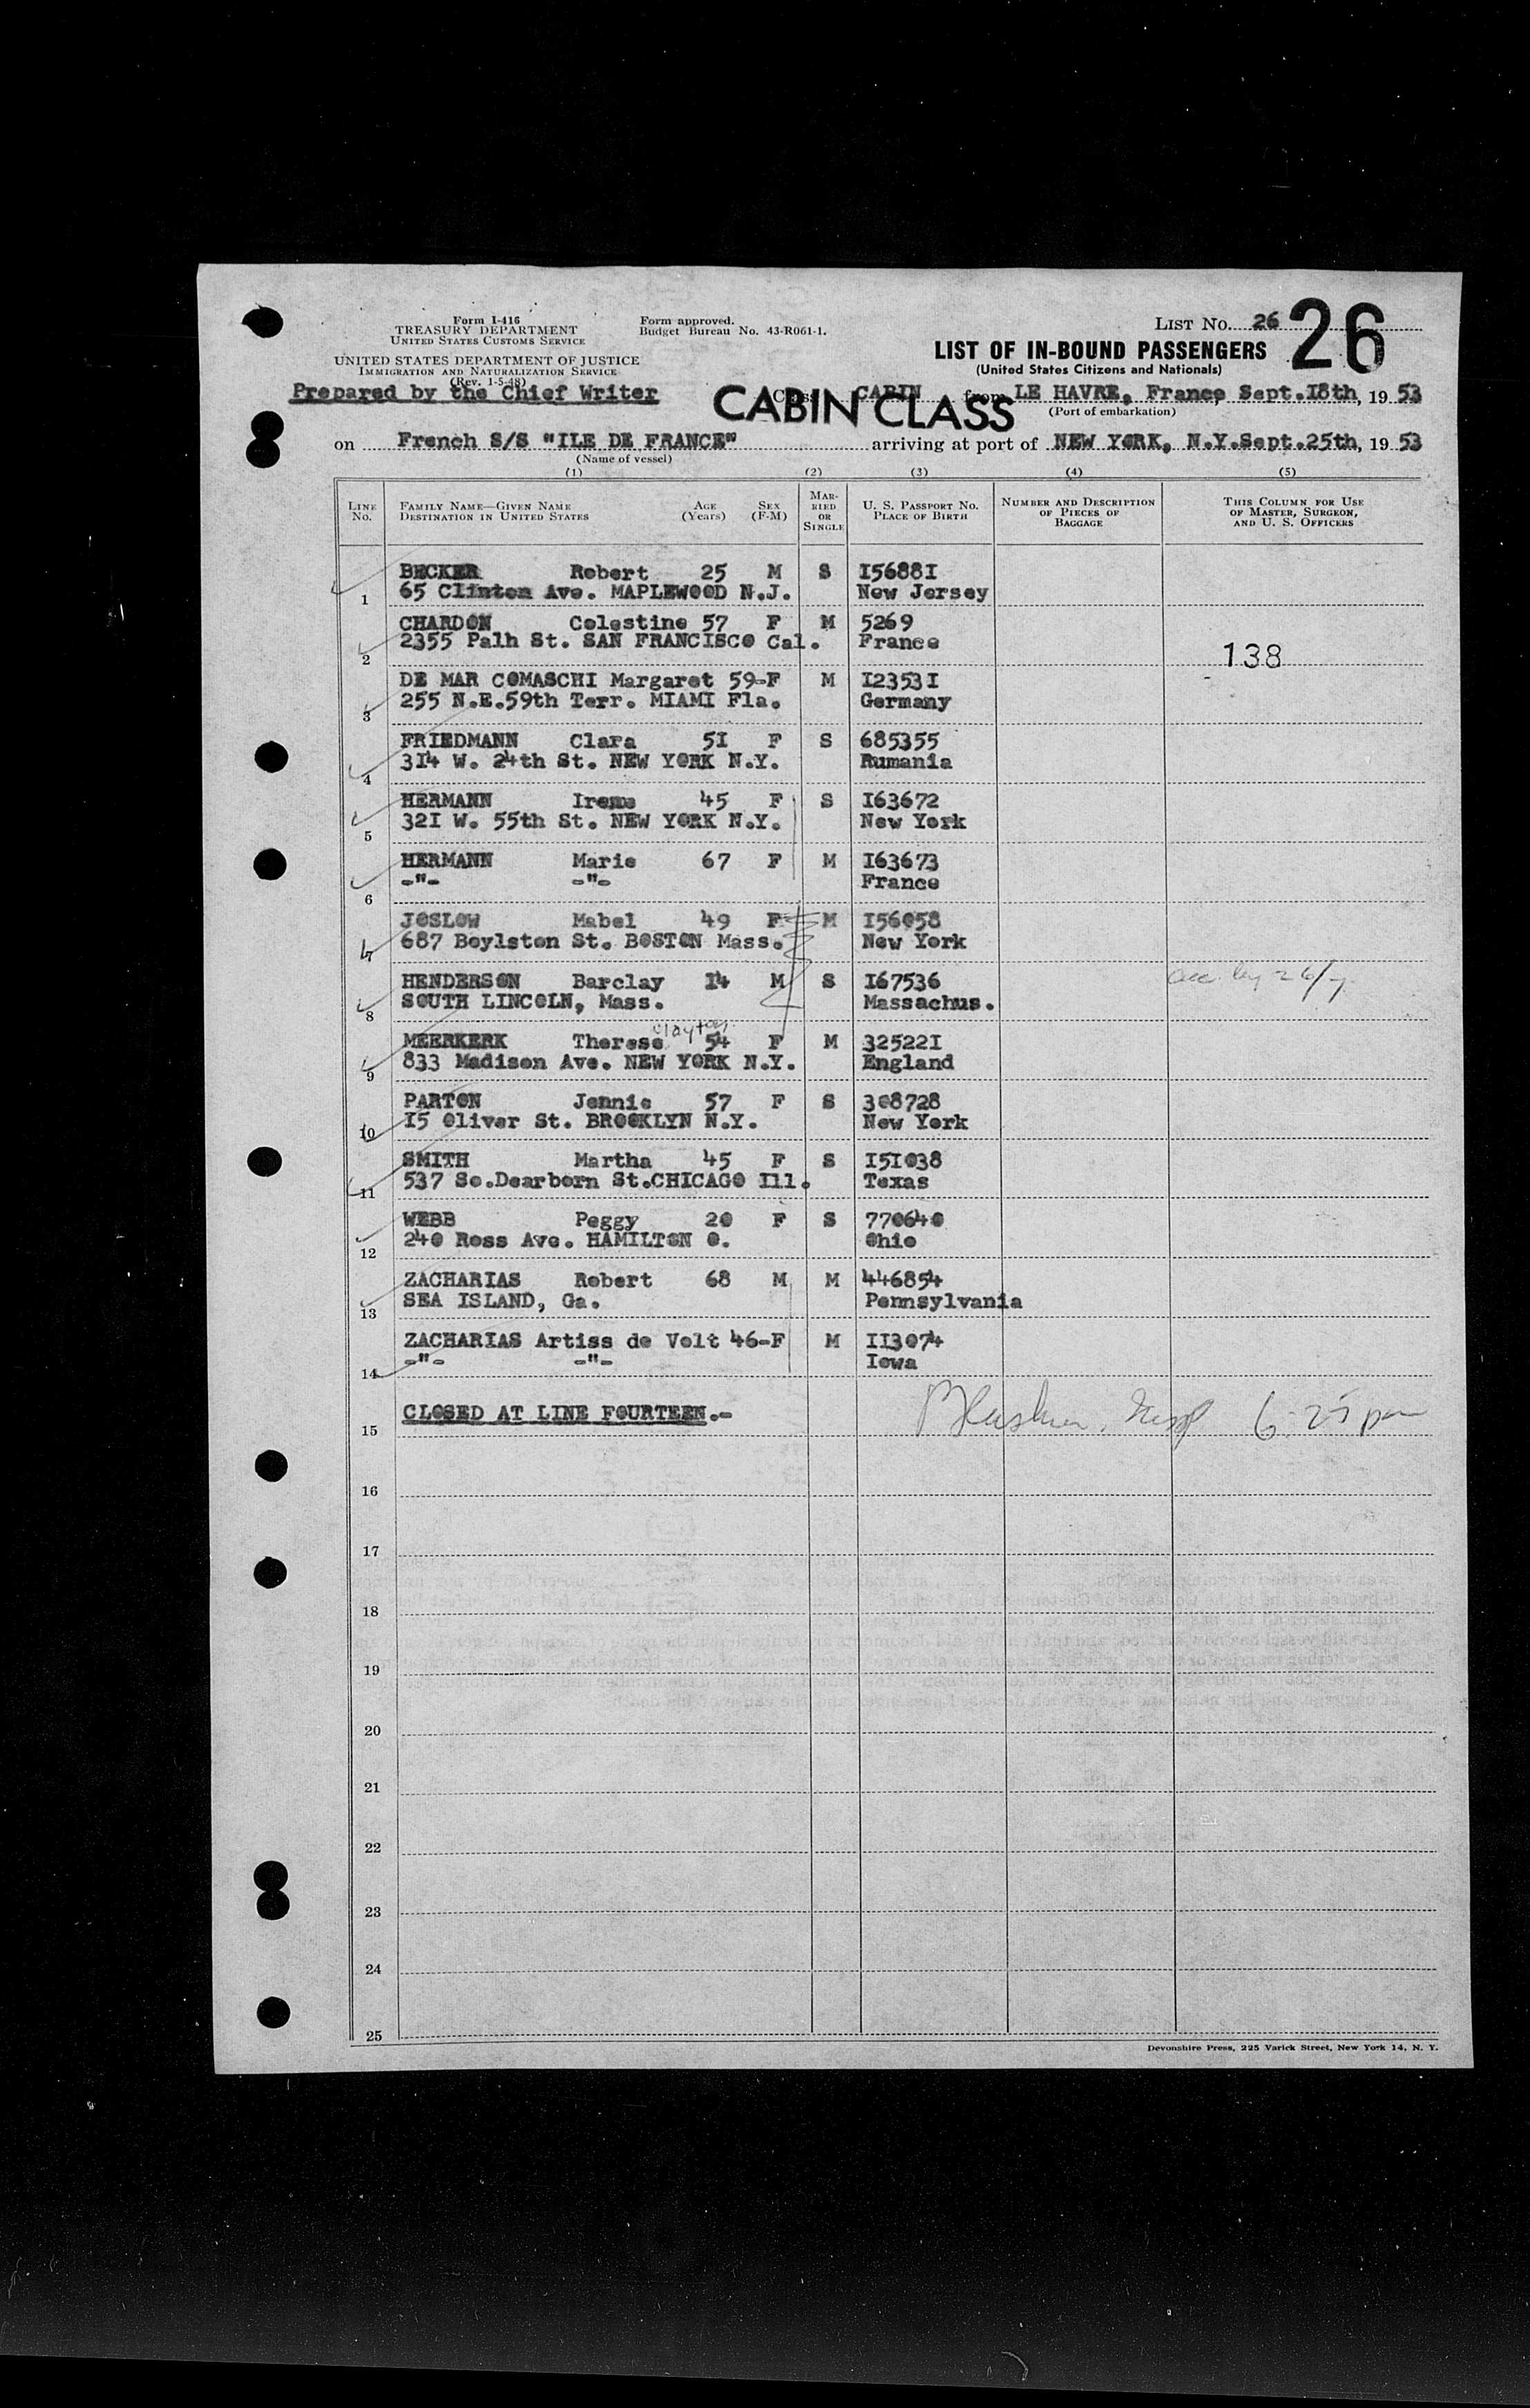 Form I-416
TREASURY DEPARTMENT
UNITED STATES CUSTOMS SERVICE
UNITED STATES DEPARTMENT OF JUSTICE
IMMIGRATION AND NATURALIZATION SERVICE
(Rev. 1-5-48)
Prepared by the Chief Writer
Form approved.
Budget Bureau No. 43-R061-1.
LIST No. 26
26
LIST OF IN-BOUND PASSENGERS
(United States Citizens and Nationals)
CABIN CLASS
Class CABIN from LE HAVRE, France, Sept.18th, 1953
(Port of embarkation)
on French S/S "ILE DE FRANCE" arriving at port of NEW YORK, N.Y.Sept.25th, 1953
(Name of vessel)
(1) (2) (3) (4) (5)
LINE No.
FAMILY NAME—GIVEN NAME AGE (Years) SEX (F-M)
DESTINATION IN UNITED STATES
MARRIED OR SINGLE
U. S. PASSPORT No.
PLACE OF BIRTH
NUMBER AND DESCRIPTION OF PIECES OF BAGGAGE
THIS COLUMN FOR USE OF MASTER, SURGEON, AND U. S. OFFICERS
1 BECKER Robert 25 M S I5688I
65 Clinton Ave. MAPLEWOOD N.J. New Jersey
2 CHARDON Celestine 57 F M 5269
2355 Palh St. SAN FRANCISCO Cal. France
138
3 DE MAR COMASCHI Margaret 59-F M I2353I
255 N.E.59th Terr. MIAMI Fla. Germany
4 FRIEDMANN Clara 5I F S 685355
3I4 W. 24th St. NEW YORK N.Y. Rumania
5 HERMANN Irene 45 F S I63672
32I W. 55th St. NEW YORK N.Y. New York
6 HERMANN Marie 67 F M I63673
-"- -"- France
7 JOSLOW Mabel 49 F M I56058
687 Boylston St. BOSTON Mass. New York
8 HENDERSON Barclay I4 M S I67536
SOUTH LINCOLN, Mass. Massachus.
acc. by 26/7
Clayton
9 MEERKERK Therese 54 F M 32522I
833 Madison Ave. NEW YORK N.Y. England
10 PARTON Jennie 57 F S 308728
I5 Oliver St. BROOKLYN N.Y. New York
11 SMITH Martha 45 F S I5I038
537 So.Dearborn St.CHICAGO Ill. Texas
12 WEBB Peggy 20 F S 770640
240 Ross Ave. HAMILTON O. Ohio
13 ZACHARIAS Robert 68 M M 446854
SEA ISLAND, Ga. Pennsylvania
14 ZACHARIAS Artiss de Volt 46-F M II3074
-"- -"- Iowa
15 CLOSED AT LINE FOURTEEN.-
6:25 pm
16
17
18
19
20
21
22
23
24
25
Devonshire Press, 225 Varick Street, New York 14, N. Y.